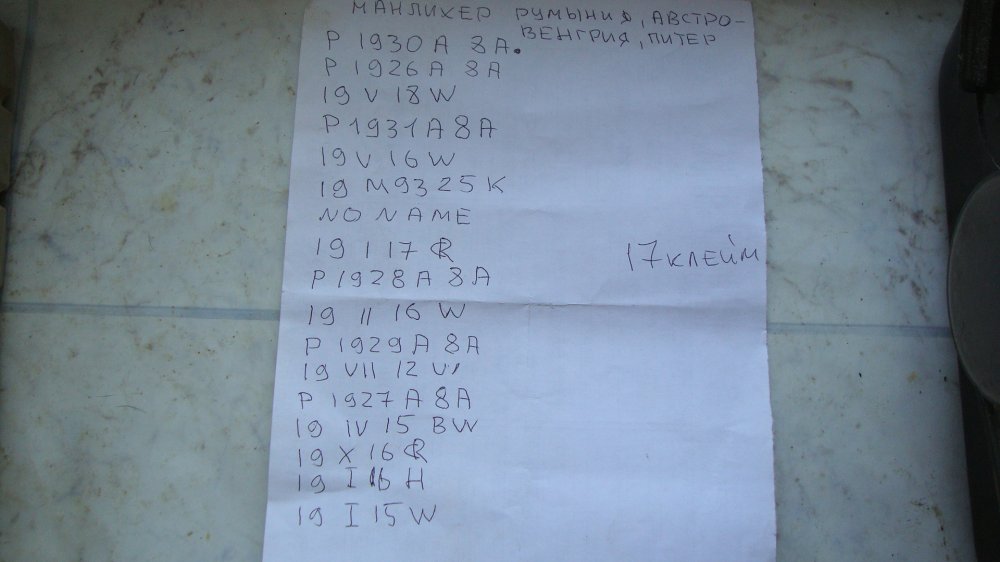 МАНЛИХЕР РУМЫНИЯ, АВСТРО-
ВЕНГРИЯ, ПИТЕР
P 1930 A 8A.
P 1926 A 8A
19 V 18 W
P 1931 A 8A
19 V 16 W
19 M93 25 K
NO NAME
19 I 17 R
17 КЛЕЙМ
P 1928 A 8A
19 II 16 W
P 1929 A 8A
19 VII 12 W
P 1927 A 8A
19 IV 15 BW
19 X 16 R
19 I 16 H
19 I 15 W